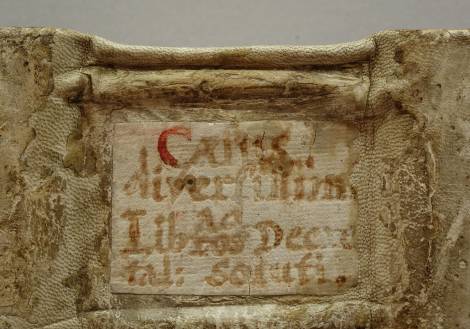 Casus
diversi, in
ad
Libros Decre
tal: soluti.